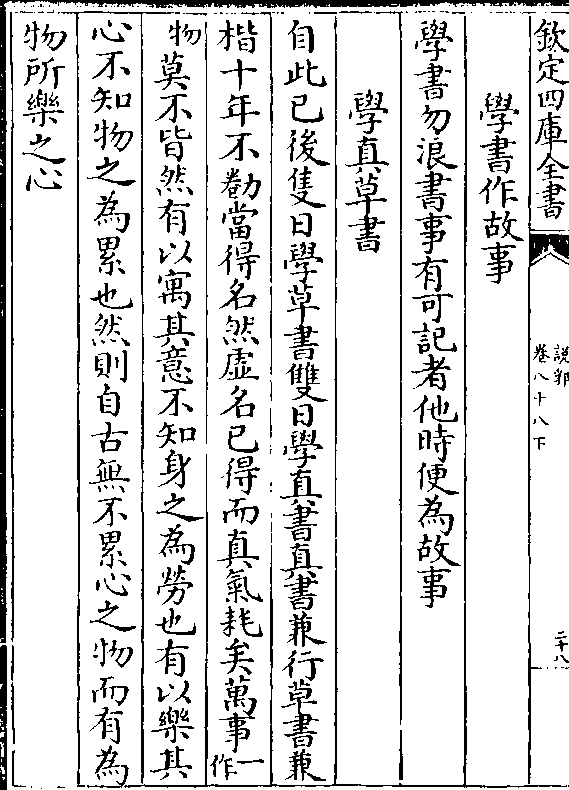 欽定四庫全書
說郛
卷八十八下
二十八
學書作故事
學書勿浪書事有可記者他時便為故事
學真草書
自此已後隻日學草書雙日學真書真書兼行草書兼
楷十年不勌當得名然虛名已得而真氣耗矣萬事一作
物莫不皆然有以寓其意不知身之為勞也有以樂其
心不知物之為累也然則自古無不累心之物而有為
物所樂之心